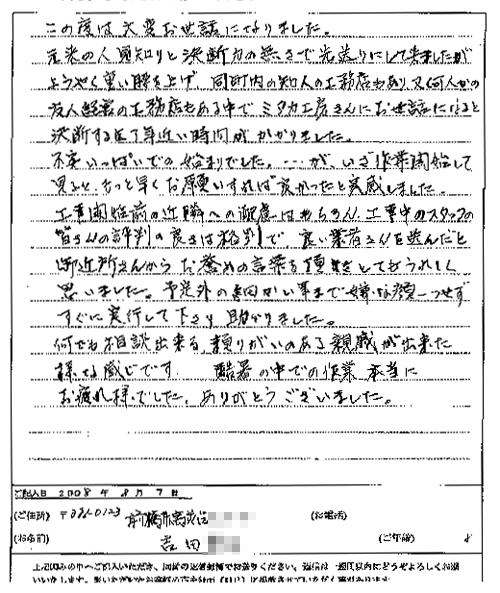 この度は大変お世話になりました。
元来の人見知りと決断力の無さで先送りにして来ましたが
ようやく重い腰を上げ、同町内の知人の工務店もあり又何人かの
友人経営の工務店もある中でミタカ工房さんにお世話になると
決断するまで1年近い時間がかかりました。
不安いっぱいでの始まりでした。…が、いざ作業開始して
見ると、もっと早くお願いすれば良かったと実感しました。
工事開始前の近隣への配慮はもちろん、工事中のスタッフの
皆さんの評判の良さは格別で、良い業者さんを選んだと
御近所さんからお誉めの言葉を頂きとてもうれしく
思いました。予定外の細かい事まで嫌な顔一つせず
すぐに実行して下さり助かりました。
何でも相談出来る、頼りがいのある親戚が出来た
様な感じです。 酷暑の中での作業 本当に
お疲れ様でした。ありがとうございました。
ご記入日 2008年 8月 7日
(ご住所) 〒371-0123 前橋市高花台 (お電話)
(お名前) 吉田 (ご年齢) 才
上記囲みの中へご記入いただき、同封の返信封筒でお送りください。返信は一週間以内にどうぞよろしくお願